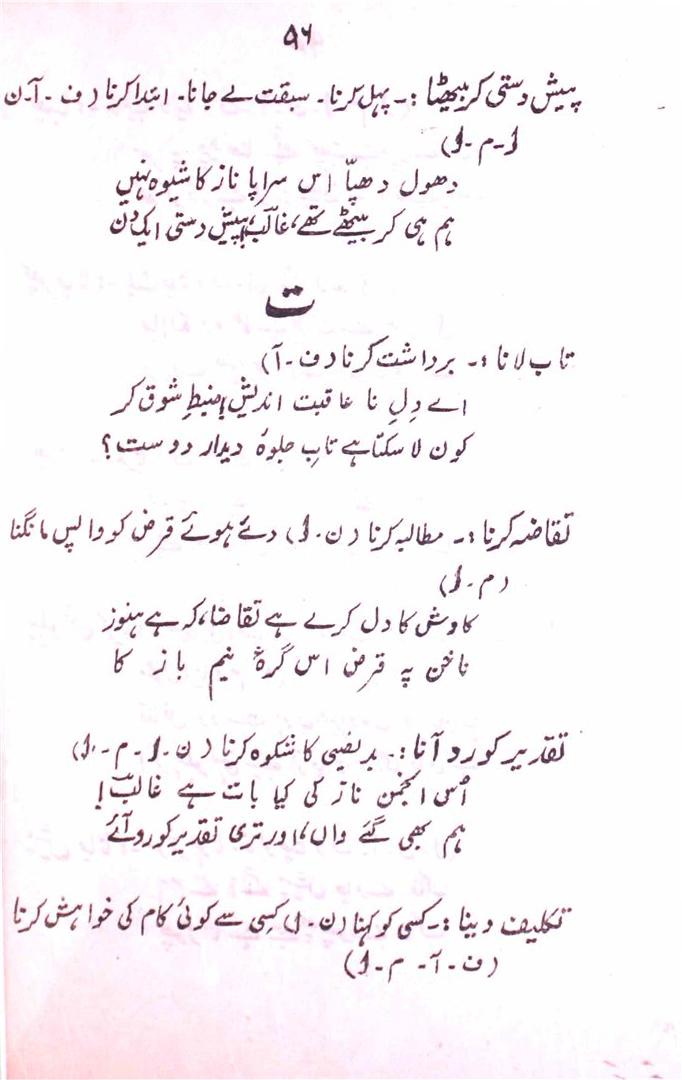 ۵۶
پیش دستی کر بیٹھنا :۔ پہل کرنا۔ سبقت لے جانا۔ ابتدا کرنا (ف۔آ۔ن
ا۔م۔ا)
دھول دھپّا اس سراپا ناز کا شیوہ نہیں
ہم ہی کر بیٹھے تھے، غالبؔ، پیش دستی ایک دن
ت
تاب لانا :۔ برداشت کرنا (ف۔آ)
اے دلِ نا عاقبت اندیش! ضبطِ شوق کر
کون لا سکتا ہے تابِ جلوۂ دیدار دوست؟
تقاضہ کرنا :۔ مطالبہ کرنا (ن۔ا) دئے ہوئے قرض کو واپس مانگنا
(م۔ا)
کاوش کا دل کرے ہے تقاضا، کہ ہے ہنوز
ناخن پہ قرض اس گرۂ نیم باز کا
تقدیر کو رو آنا :۔ بدنصیبی کا شکوہ کرنا (ن۔ا۔م۔ا)
اُس انجمن ناز کی کیا بات ہے غالبؔ!
ہم بھی گئے واں، اور تری تقدیر کو رو آئے
تکلیف دینا :۔ کسی کو کہنا (ن۔ا) کسی سے کوئی کام کی خواہش کرنا
(ف۔آ۔م۔ا)